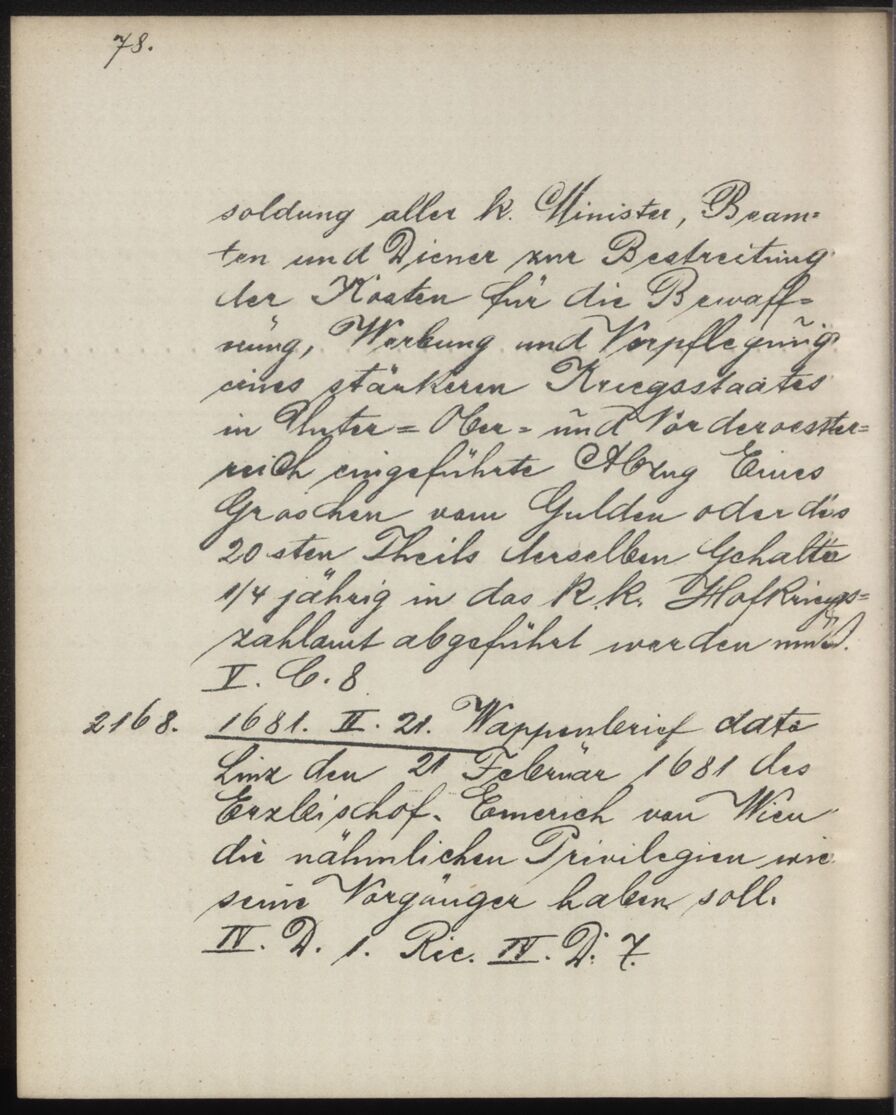 78.
soldung aller k. Minister, Beam=
ten und Diener zur Bestreitung
der Kosten für die Bewaff=
nung, Werbung und Verpflegung
eines stärkeren Kriegsstaates
in Unter= Ober= und Vorderoester=
reich eingeführte Abzug Eines
Groschen vom Gulden oder des
20sten Theils derselben Gehalte
1/4 jährig in das k.k. Hofkriegs=
zahlamt abgeführt werden muß.
V. C. 8
2168. 1681. II. 21. Wappenbrief dato
Linz den 21 Februar 1681 des
Erzbischof. Emerich von Wien
die nähmlichen Privilegien wie
seine Vorgänger haben soll.
IV. D. 1. Ric. IV. D. 7.